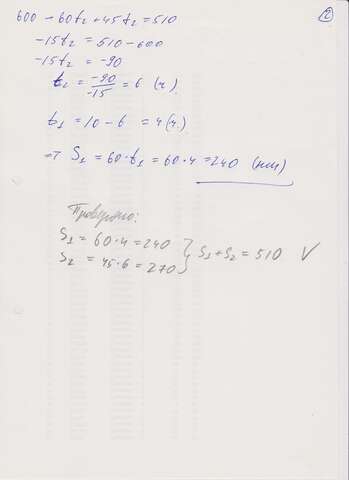 2
600 - 60t₂ + 45t₂ = 510
-15t₂ = 510 - 600
-15t₂ = -90
t₂ = -90/-15 = 6 (ч.)
t₁ = 10 - 6 = 4 (ч.)
⇒ S₁ = 60·t₁ = 60·4 = 240 (км)
S₁ = 60·4 = 240
S₂ = 45·6 = 270
} S₁ + S₂ = 510 V